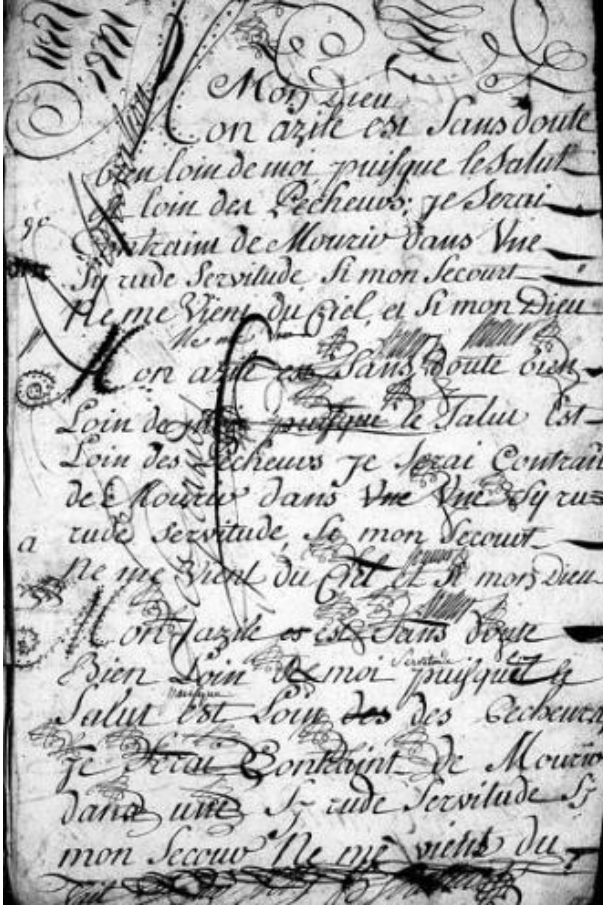 Mon Dieu
Mon azile est Sans doute
bien loin de moi puisque le Salut
est loin des Pécheurs; je Serai
Contraint de Mourir dans Vne
Sy rude Servitude, Si mon Secourt
Ne me Vient du Ciel, et Si mon Dieu
Mon azile est Sans doute bien
Loin de puisque le Salut est
Loin des Pecheurs je Serai Contrain
de Mourir dans Vne Vne Sy ru
rude servitude, Si mon Secourt
a
Ne me Vient du Ciel et Si mon Dieu
Mon azile es est Sans doute
Bien Loin de moi Servitude puisque le
Salut est Loin des des Pecheurs
je Serai Contraint de Mourir
dans une Sy rude Servitude Sy
mon Secour Ne me vient du